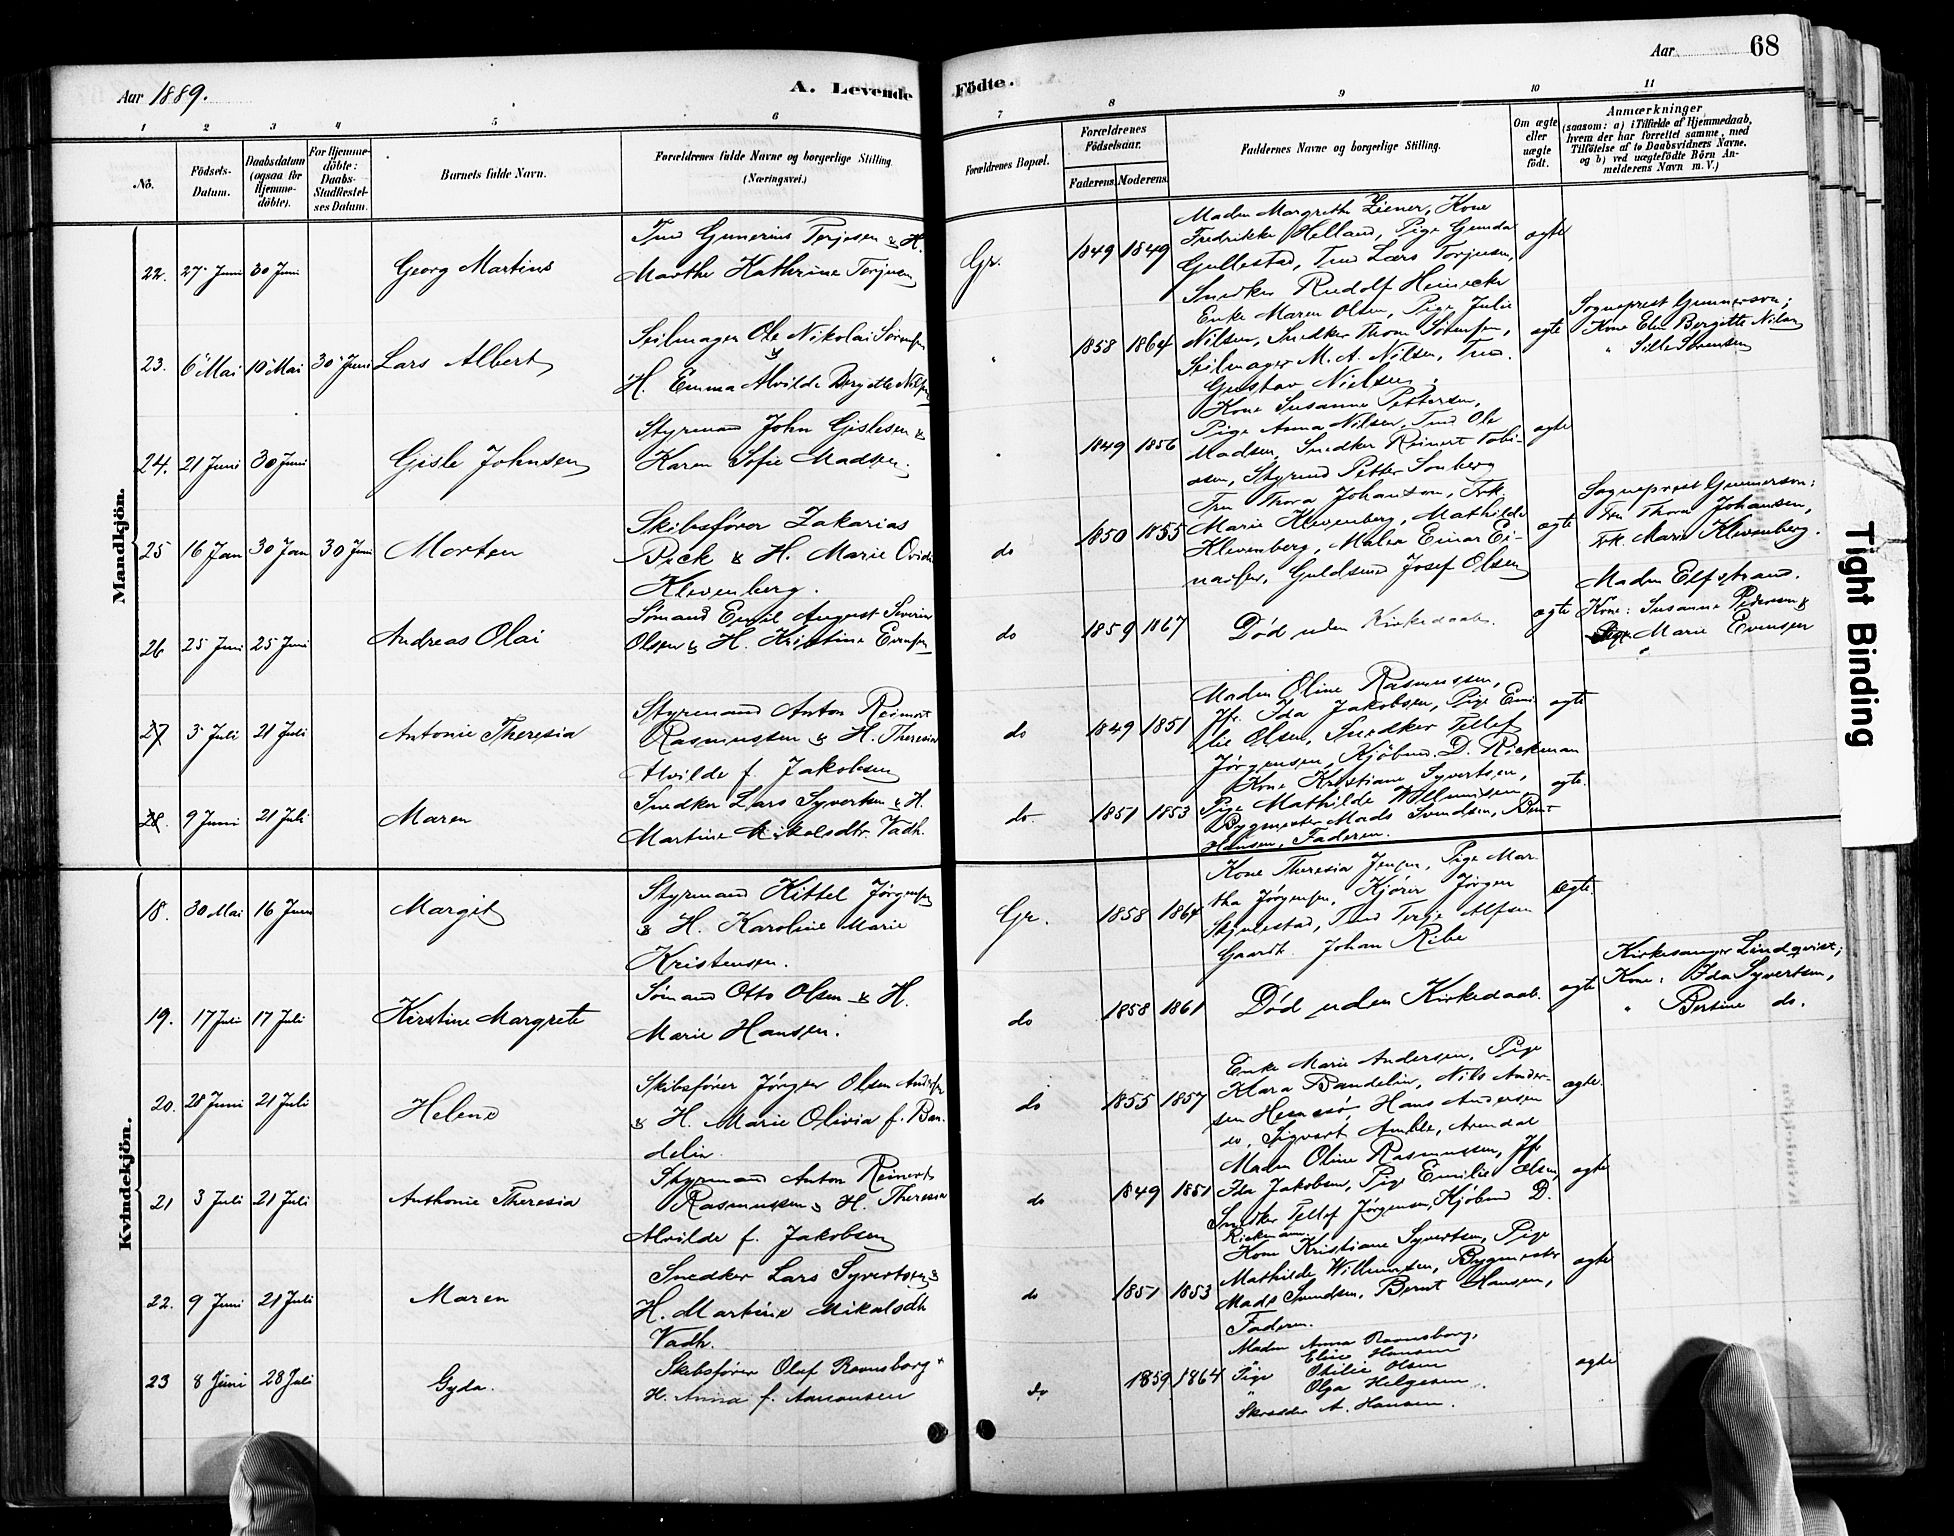 Aar 1889.
A. Levende Födte.
Aar 68
1 2 3 4 5 6 7 8 9 10 11
No.
Födsels-Datum.
Daabsdatum (ogsaa for Hjemme-döbte).
For Hjemme-döbte: Daabs-Stadfæstel-ses Datum.
Barnets fulde Navn.
Forældrenes fulde Navne og borgerlige Stilling. (Næringsvei.)
Forældrenes Bopæl.
Forældrenes Födselsaar.
Faderens. Moderens.
Faddernes Navne og borgerlige Stilling.
Om ægte eller uægte födt.
Anmærkninger
(saasom: a) i Tilfælde af Hjemmedaab, hvem der har forrettet samme, med Tilföielse af to Daabsvidners Navne, og b) ved uægtefödte Börn An-melderens Navn m. V.)
Mandkjön.
22. 27 Juni 30 Juni Georg Martius
Tmd Gunerius Terjesen & H.
Marthe Kathrine Terjesen
Gr. 1849 1849
Maden Margrethe Ziener, Kone
Fredrikke Helland, Pige Gunda
Gullestad, Tmd Lars Torjusen,
Snedker Rudolf Heinecke
ægte
23. 6 Mai 10 Mai 30 Juni Lars Albert
Seilmager Ole Nikolai Sørensen
&
H. Emma Alvilde Bergitte Nilsen
" 1858 1864
Enke Maren Olsen, Pige Julie
Nilsen, Snedker Thom Sørensen,
Seilmager M. A. Nilsen, Tmd.
Gustav Nielsen.
ægte
Sogneprest Gunnerson;
Kone Elen Bergitte Nilsen
" Sille Sørensen
24. 21 Juni 30 Juni Gisle Johnsen
Styrmand John Gislesen &
Karen Sofie Madsen.
" 1849 1856
Kone Susanne Pettersen,
Pige Anna Nilsen, Tmd Ole
Madsen, Snedker Reinert Tobi-
asen, Styrmd Petter Sonberg
ægte
25 16 Jan 30 Jan 30 Juni Morten
Skibsfører Zakarias
Pick & H. Marie Ovidia
Klevenberg.
do 1850 1855
Fru Thora Johansen, Frk.
Marie Klevenberg, Mathilde
Klevenberg, Maler Einar Ei-
narsen, Guldsmed Josef Olsen
ægte
Sogneprest Gunnerson;
Fru Thora Johansen,
Frk. Marie Klevenberg.
26 25 Juni 25 Juni Andreas Olai
Sømand Emil August Severin
Olsen & H. Kristine Evensen
do 1859 1867
Død uden Kirkedaab.
ægte
Maden Elfstrand.
Kone: Susanne Pedersen &
Pige Marie Evensen
27 3 Juli 21 Juli Antonie Theresia
Styrmand Anton Reinert
Rasmussen & H. Theresia
Alvilde f. Jakobsen
do 1849 1851
Maden Oline Rasmussen,
Jfr. Ida Jakobsen, Pige Emi-
lie Olsen, Snedker Tellef
Jørgensen, Kjøbmd. D. Rickman
ægte
28. 9 Juni 21 Juli Maren
Snedker Lars Syvertsen & H.
Martine Mikalsdtr. Vadh.
do. 1851 1853
Kone Kristiane Syvertsen,
Pige Mathilde Willumsen,
Bygmester Mads Svendsen, Bernt
Hansen, Faderen.
ægte.
Kvindekjön.
18. 30 Mai 16 Juni Margit
Styrmand Kittel Jørgensen
& H. Karoline Marie
Kristensen.
Gr. 1858 1864
Kone Theresia Jensen, Pige Mar-
tha Jørgensen, Kjører Jørgen
Skjulestad, Tmd Terje Alfsen
Gaardt. Johan Ribe
ægte.
19. 17 Juli 17 Juli Kirstine Margrete
Sømand Otto Olsen & H.
Marie Hansen.
do 1858 1861
Død uden Kirkedaab.
ægte
Kirkesanger Lindqvist;
Kone: Ida Syvertsen,
" Bertine do.
20. 28 Juni 21 Juli Helene
Skibsfører Jørgen Olsen Andersen
& H. Marie Olivia f. Ban-
delin.
do 1855 1857
Enke Marie Andersen, Pige
Klara Bandelin, Nils Ander-
sen Hesnesø, Hans Andersen
do, Sigvart Amble, Arendal
ægte.
21 3 Juli 21 Juli Anthonie Theresia
Styrmand Anton Reinert
Rasmussen & H. Theresia
Alvilde f. Jakobsen
do 1849 1851
Maden Oline Rasmussen, Jfr
Ida Jakobsen, Pige Emilie Olsen,
Snedker Tellef Jørgensen, Kjøbmd D.
Rickmann.
ægte
22. 9 Juni 21 Juli Maren
Snedker Lars Syvertsen &
H. Martine Mikalsdtr
Vadh.
do 1851 1853
Kone Kristiane Syvertsen, Pige
Mathilde Willumsen, Bygmester
Mads Svendsen, Bernt Hansen,
Faderen.
ægte
23 8 Juni 28 Juli Gyda.
Skibsfører Oluf Ravnsborg +
H. Anna f. Aanonsen
do 1859 1864
Maden Anna Ravnsborg,
" Elise Hansen
Pige Othilie Olsen
" Olga Helgesen
Skrædder A. Hansen.
ægte
Tight Binding